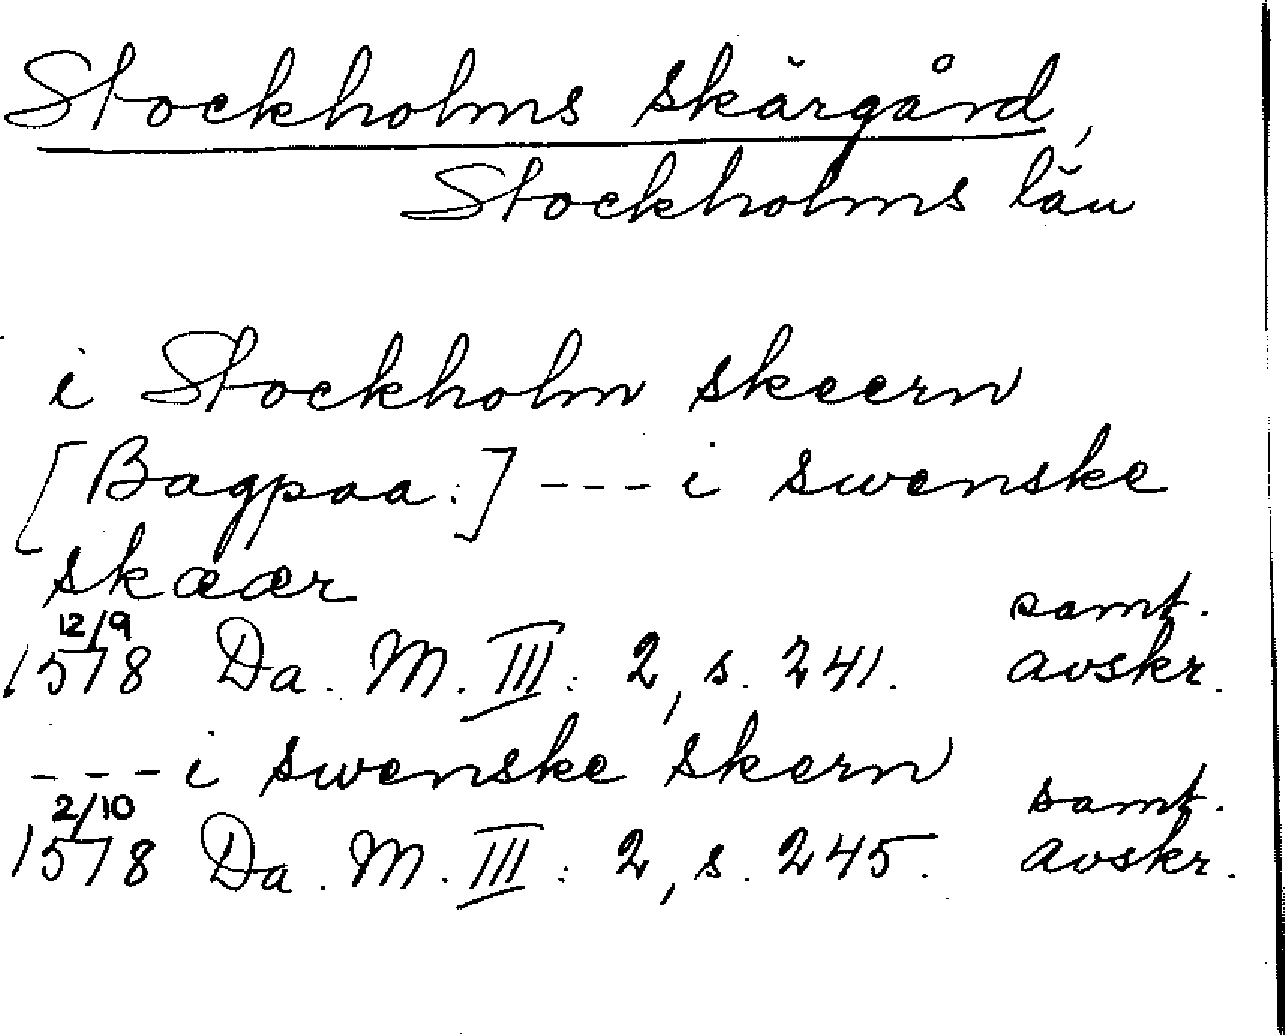 Stockholms skärgård,
Stockholms län
i Stockholm skeern
[Bagpaa:] --- i swenske
skæær
12/9 samt.
1578 Da. M. III: 2, s. 241. avskr.
--- i swenske skern
2/10 samt.
1578 Da. M. III: 2, s. 245. avskr.